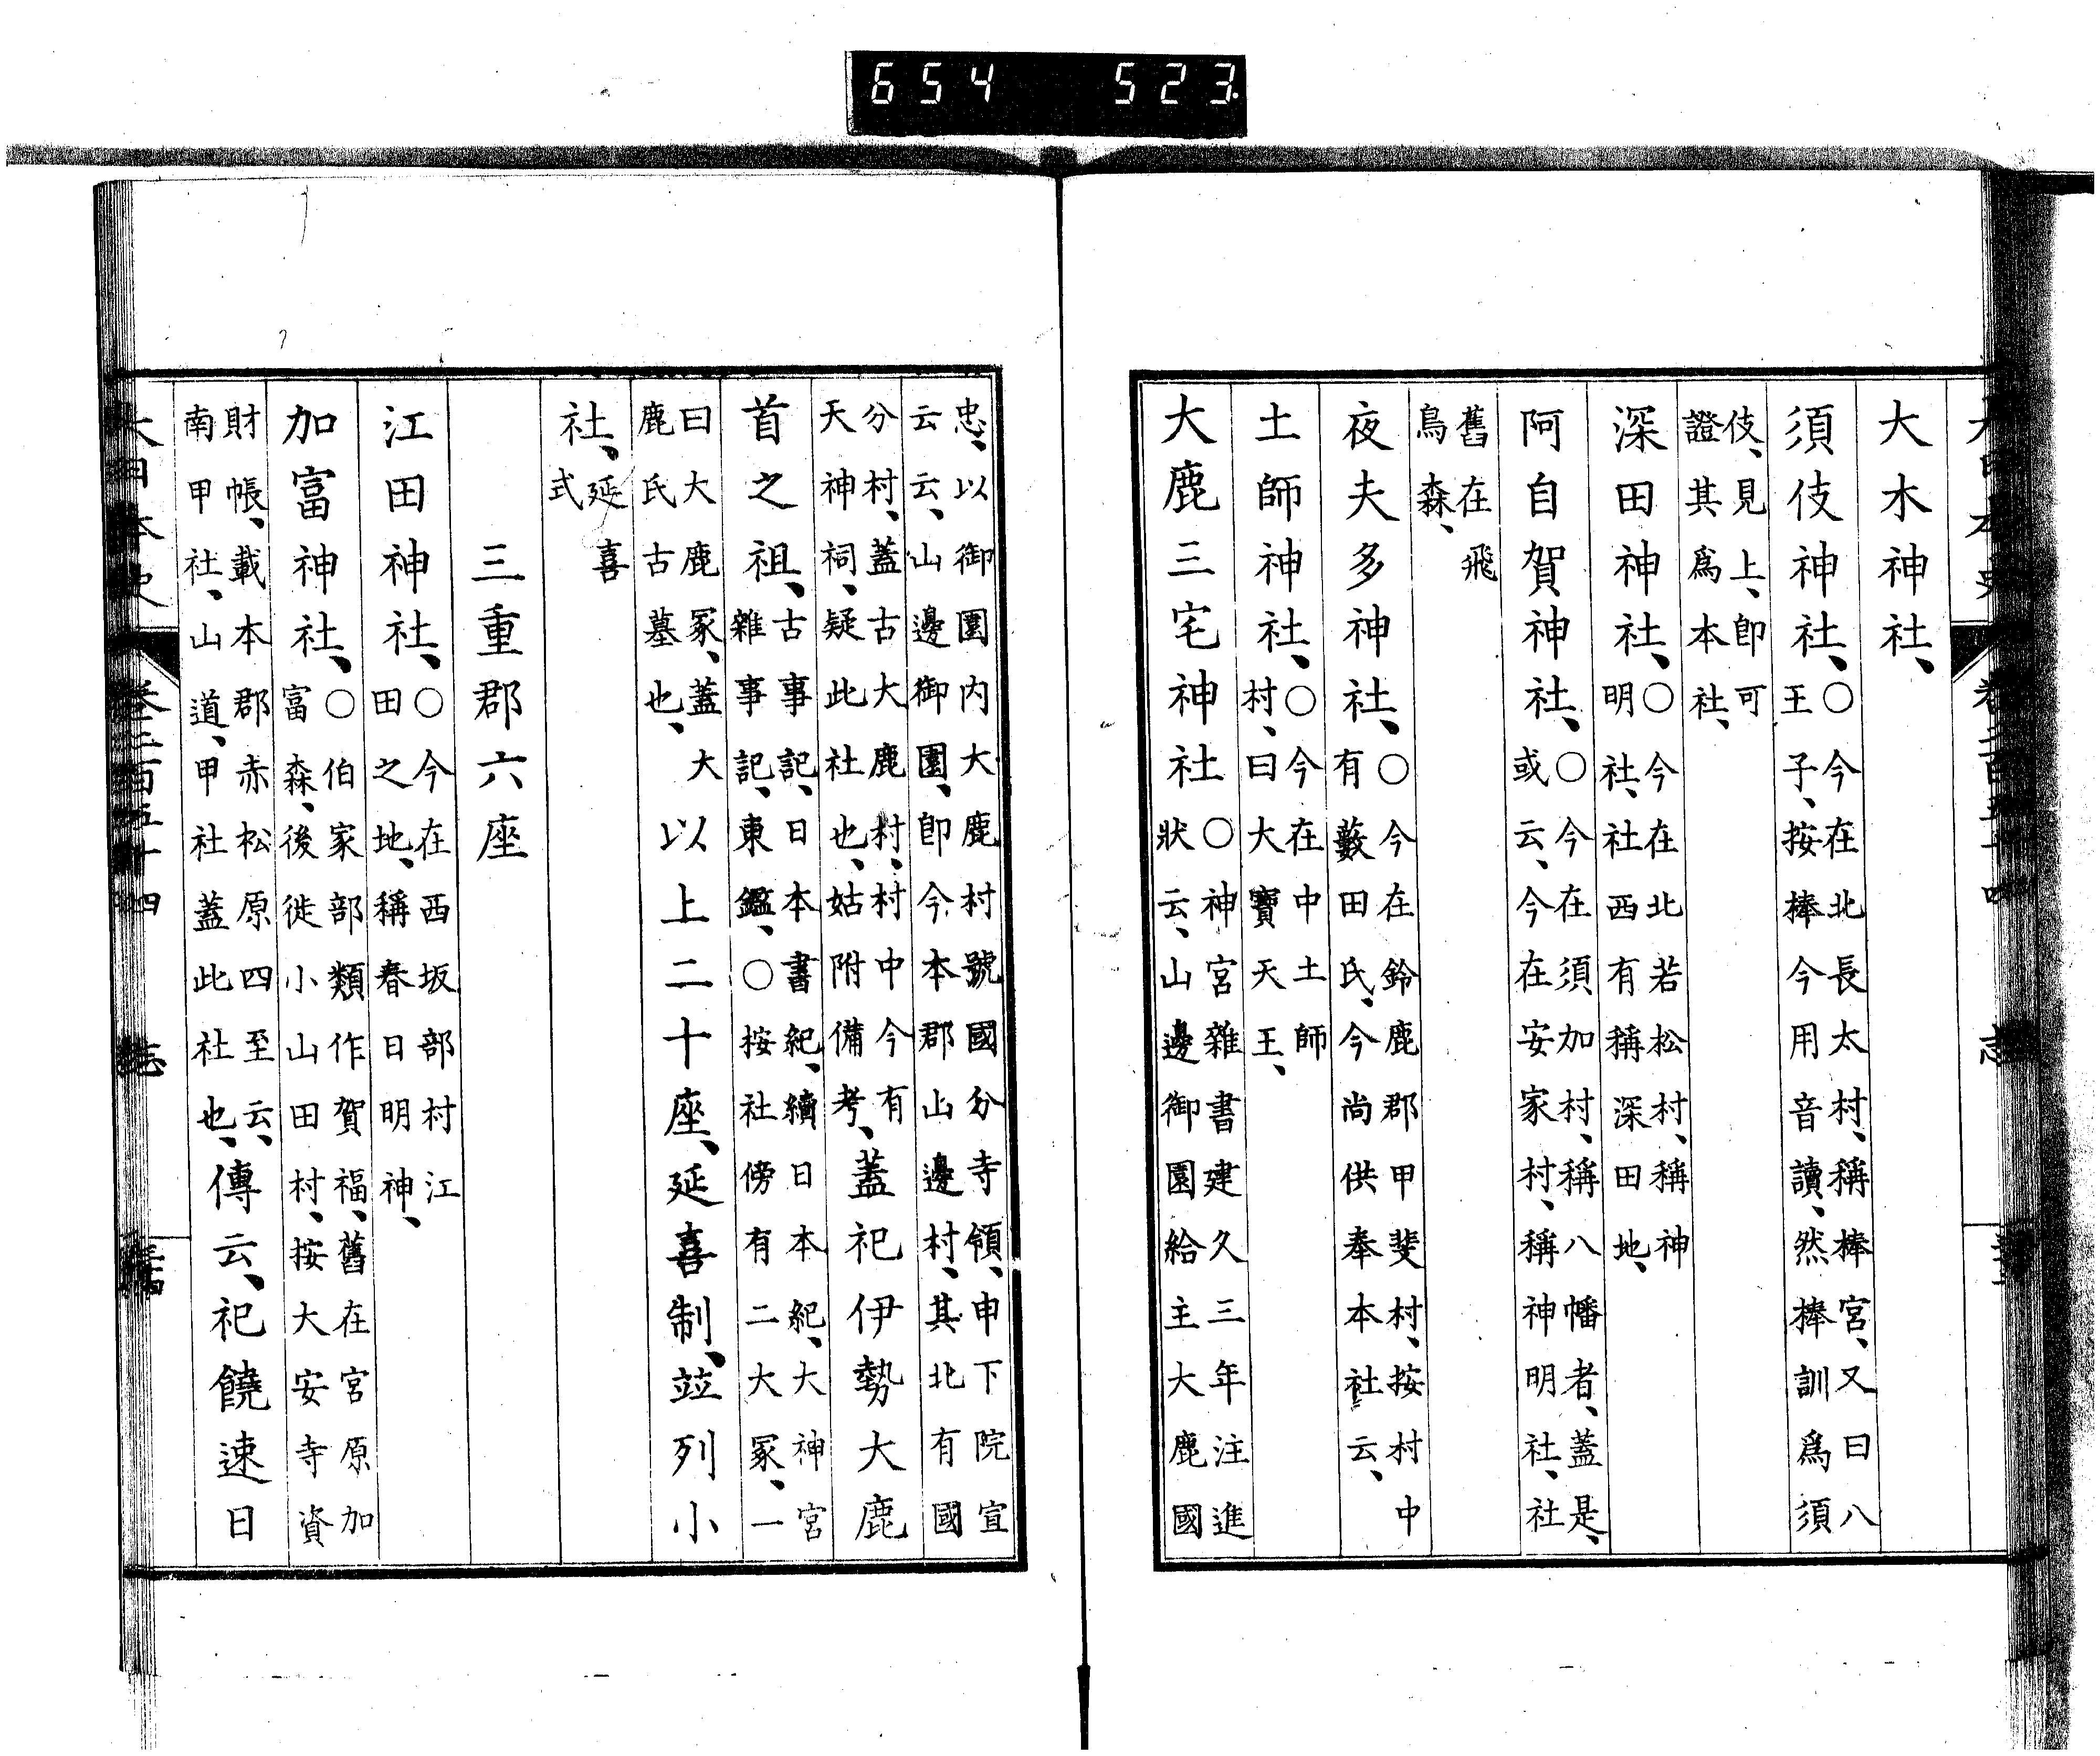 654 523
大日本史 卷二百五十四 志
大木神社、
須伎神社、○今在北長太村、稱棒宮、又曰八
王子、按棒今用音讀、然棒訓爲須
伎、見上、卽可
證其爲本社、
深田神社、○今在北若松村、稱神
明社、社西有稱深田地、
阿自賀神社、○今在須加村、稱八幡者、蓋是、
或云、今在安家村、稱神明社、社
舊在飛
鳥森、
夜夫多神社、○今在鈴鹿郡甲斐村、按村中
有藪田氏、今尚供奉本社云、
土師神社、○今在中土師
村、曰大寶天王、
大鹿三宅神社○神宮雜書建久三年注進
狀云、山邊御園給主大鹿國
忠、以御園內大鹿村號國分寺領、申下院宣
云云、山邊御園、卽今本郡山邊村、其北有國
分村、蓋古大鹿村、村中今有
天神祠、疑此社也、姑附備考、蓋祀伊勢大鹿
首之祖、古事記、日本書紀、續日本紀、大神宮
雜事記、東鑑、○按社傍有二大冢、一
曰大鹿冢、蓋大
鹿氏古墓也、以上二十座、延喜制、竝列小
社、延喜
式
三重郡六座
江田神社、○今在西坂部村江
田之地、稱春日明神、
加富神社、○伯家部類作賀福、舊在宮原加
富森、後徙小山田村、按大安寺資
財帳、載本郡赤松原四至云、
南甲社、山道、甲社蓋此社也、傳云、祀饒速日
大日本史 卷二百五十四 志